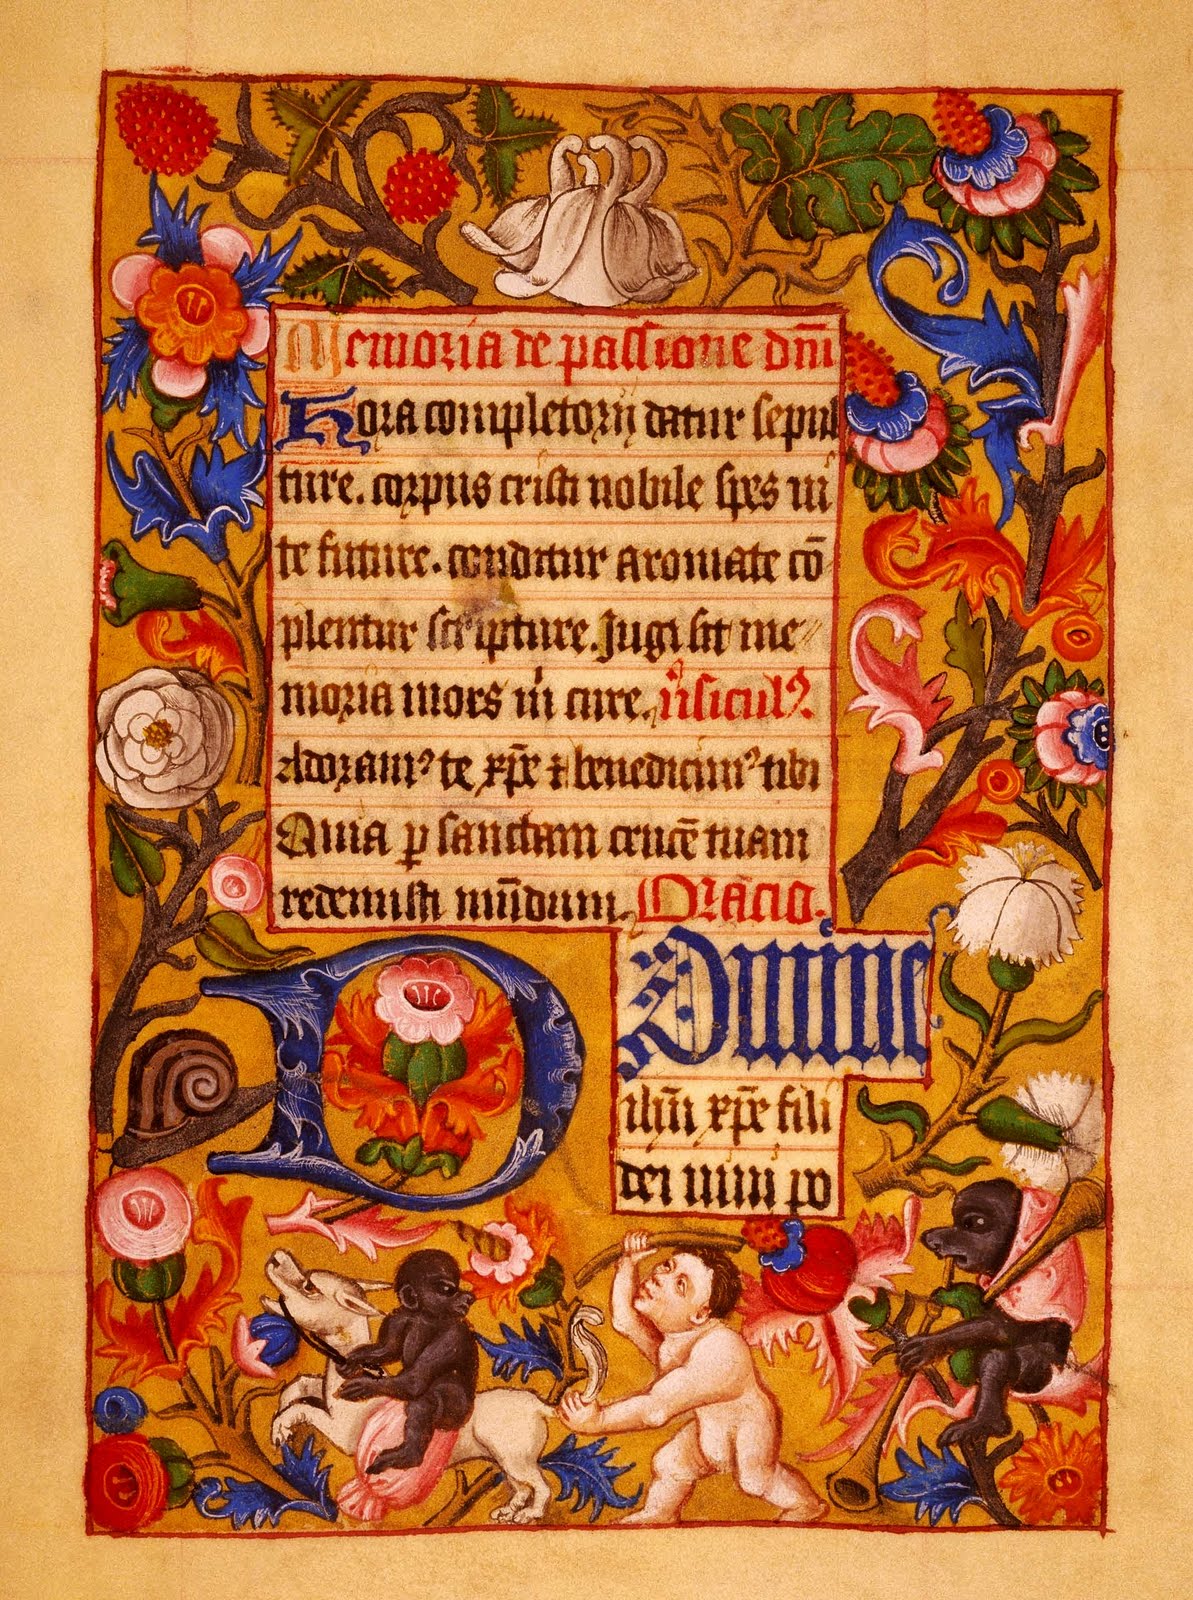 Memoria de passione dn̄i
Hora completorij datur sepul
ture. corpus cristi nobile sp̄es ui
te future. conditur aromate cō
plentur scripture. Jugi sit me
moria mors mⁱ cure. v̓siculꝰ
Adoramꝰ te xp̄e ⁊ benedicimꝰ tibi
Quia ꝑ sanctam crucē tuam
redemisti mūdum. Oracio.
Domine
ihū xp̄e fili
dei uiui po